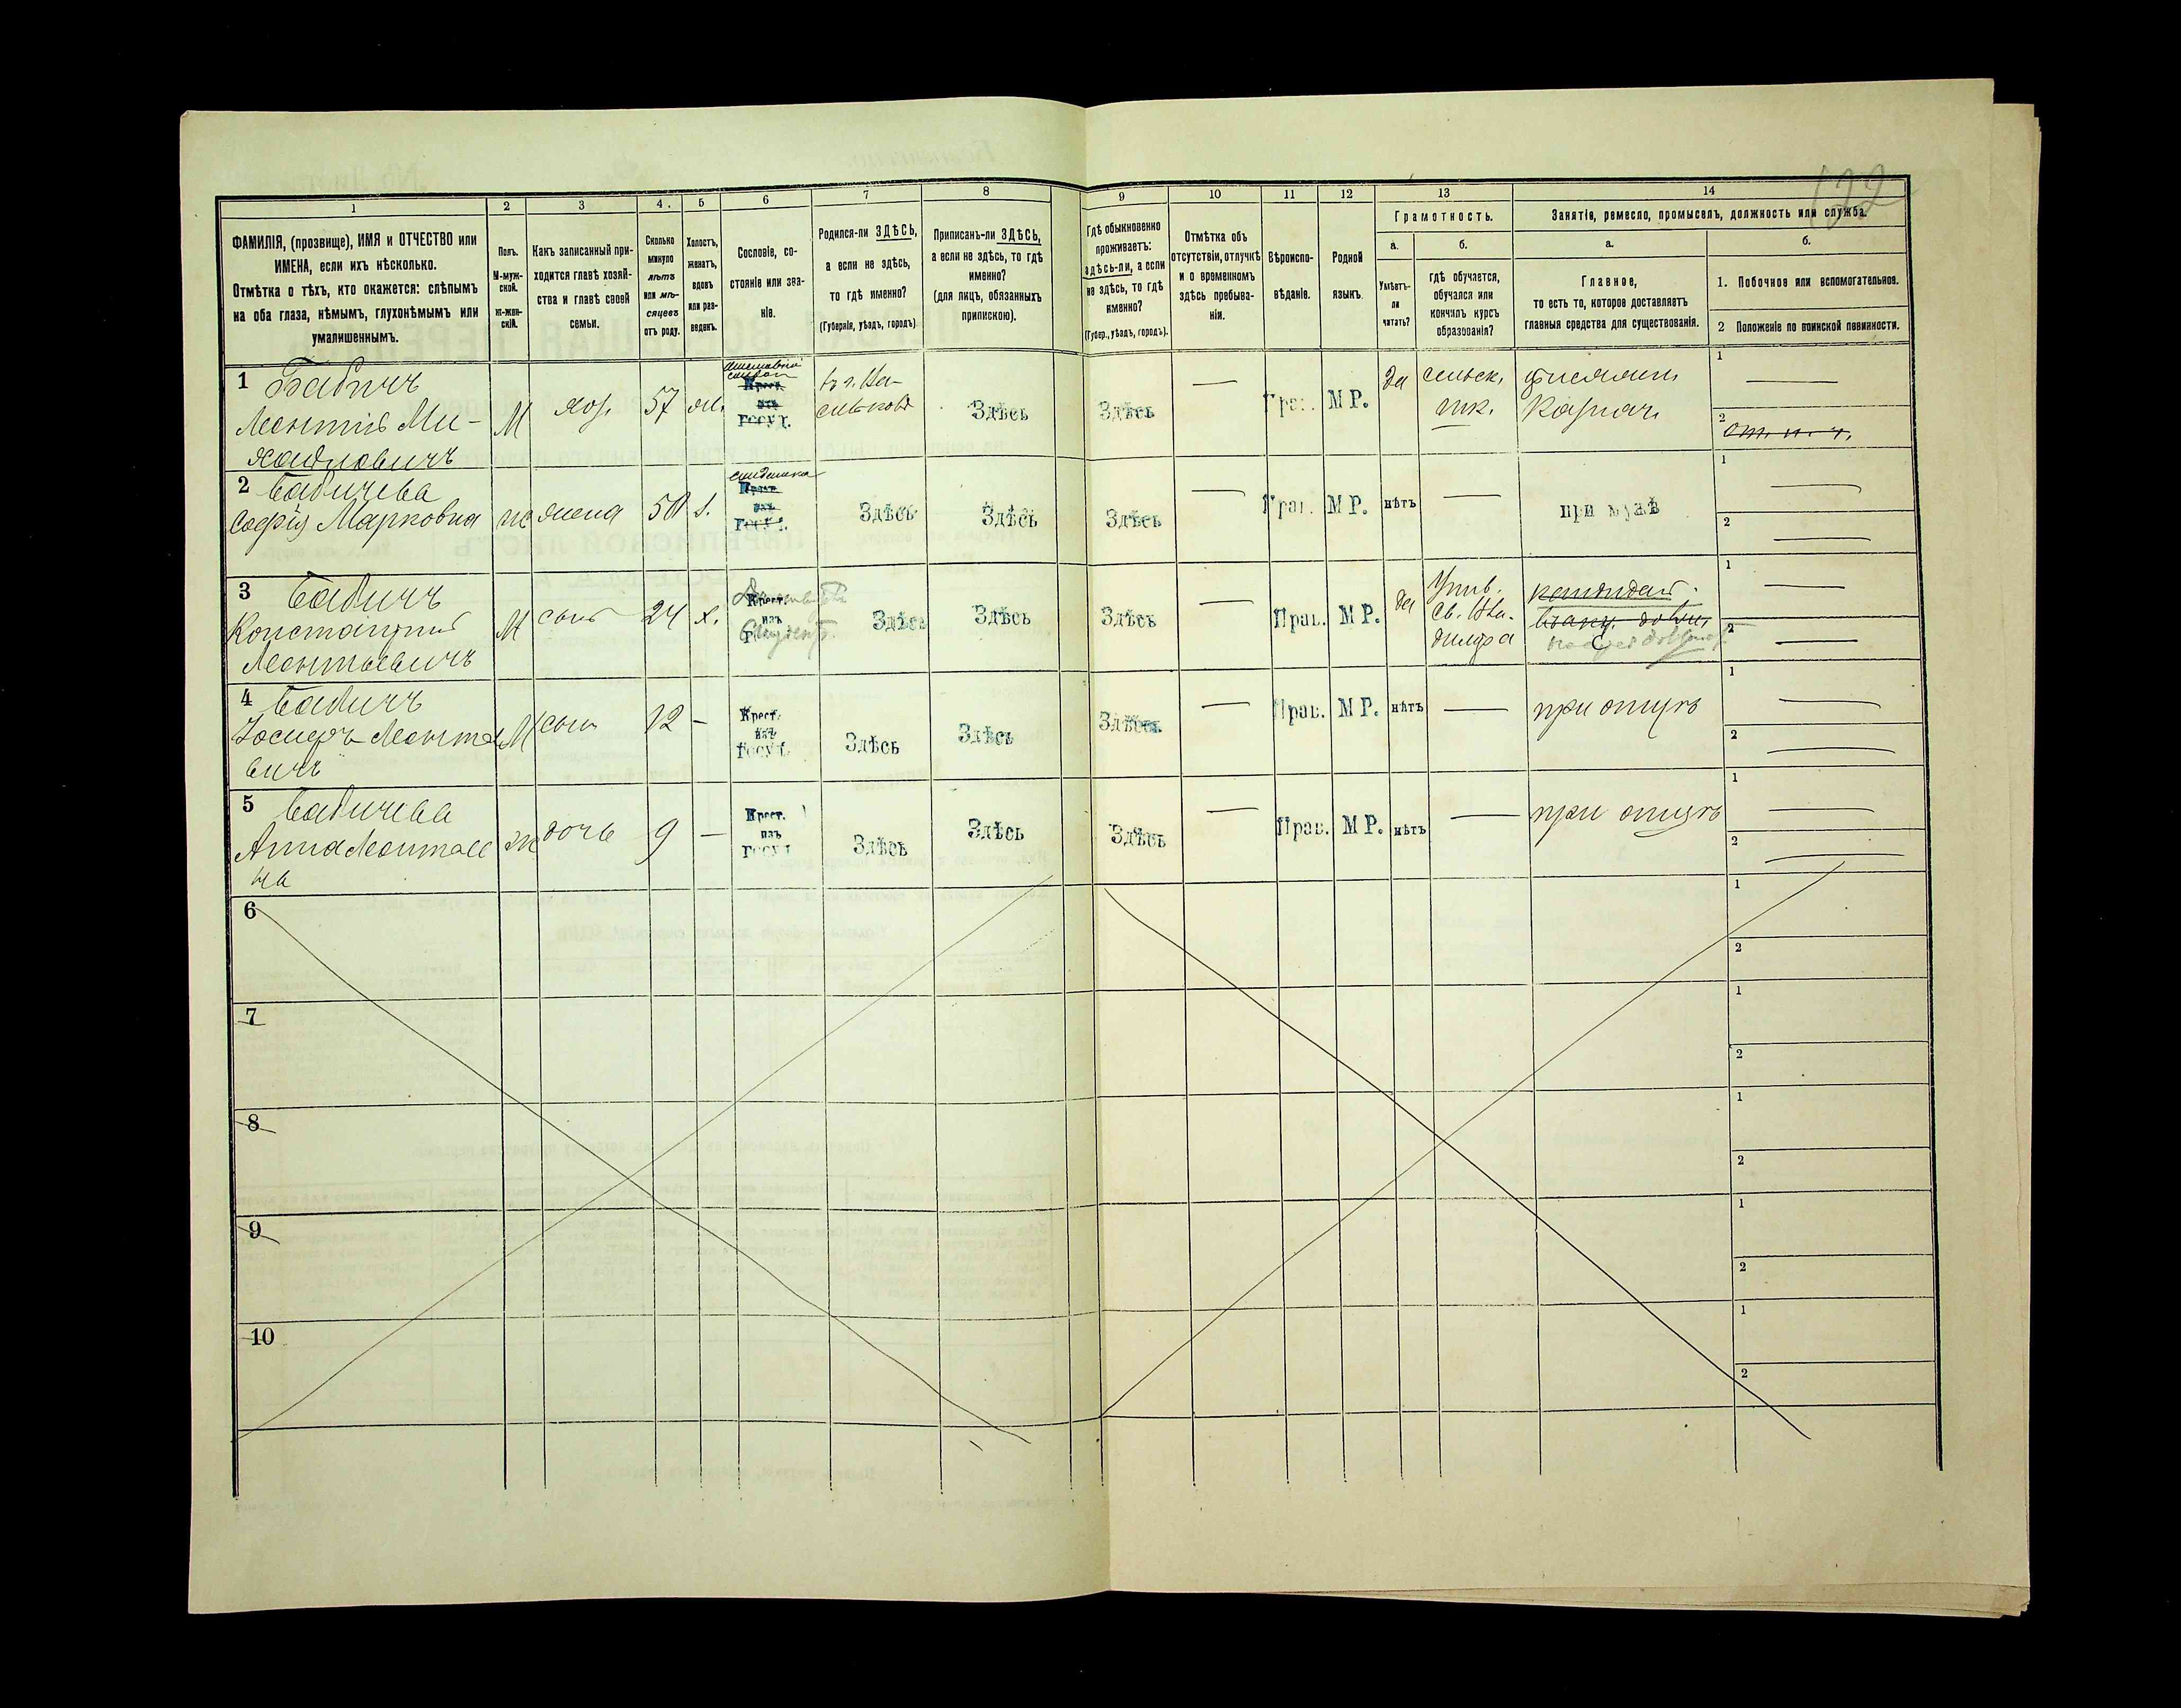 122
1 2 3 4. 5 6 7 8 9 10 11 12 13 14
ФАМИЛІЯ, (прозвище), ИМЯ и ОТЧЕСТВО или
ИМЕНА, если ихъ нѣсколько.
Отмѣтка о тѣхъ, кто окажется: слѣпымъ
на оба глаза, нѣмымъ, глухонѣмымъ или
умалишеннымъ.
Полъ.
М-муж-
ской.
ж-жен-
скій.
Какъ записанный при-
ходится главѣ хозяй-
ства и главѣ своей
семьи.
Сколько
минуло
лѣтъ
или мѣ-
сяцевъ
отъ роду.
Холостъ,
женатъ,
вдовъ
или раз-
веденъ.
Сословіе, со-
стояніе или зва-
ніе.
Родился-ли ЗДѢСЬ,
а если не здѣсь,
то гдѣ именно?
(Губернія, уѣздъ, городъ)
Приписанъ-ли ЗДѢСЬ,
а если не здѣсь, то гдѣ
именно?
(для лицъ, обязанныхъ
припискою).
Гдѣ обыкновенно
проживаетъ:
здѣсь-ли, а если
не здѣсь, то гдѣ
именно?
(Губер., уѣздъ, городъ).
Отмѣтка объ
отсутствіи, отлучкѣ
и о временномъ
здѣсь пребыва-
ніи.
Вѣроиспо-
вѣданіе.
Родной
языкъ.
Грамотность.
а.
Умѣетъ-
ли
читать?
б.
гдѣ обучается,
обучался или
кончилъ курсъ
образованія?
Занятіе, ремесло, промыселъ, должность или служба.
а.
Главное,
то есть то, которое доставляетъ
главныя средства для существованія.
б.
1. Побочное или вспомогательное.
2 Положеніе по воинской повинности.
1 Бабичъ
Леонтій Ми-
хайловичъ
М хоз. 57 ж.
Крест.
изъ
госуд.
въ г. Ва-
сильковѣ
Здѣсь Здѣсь — Прав. М Р. да
сельск.
шк.
1 —
2 от. н. ч.
2 Бабичева
Софія Марковна
ж жена 50 з.
Крест.
изъ
госуд.
Здѣсь Здѣсь Здѣсь — Прав. М Р. нѣтъ — при мужѣ
1 —
2 —
3 Бабичъ
Константинъ
Леонтьевичъ
М сынъ 24 х.
Крест.
изъ
Студентъ
Здѣсь Здѣсь Здѣсь — Прав. М Р. да
Унив.
Св. Вла-
диміра
кандидат
1 —
2 —
4 Бабичъ
Іосифъ Леонтье
вичъ
М сынъ 12 —
Крест.
изъ
госуд.
Здѣсь Здѣсь Здѣсь — Прав. М Р. нѣтъ — при отцѣ
1 —
2 —
5 Бабичева
Анна Леонтьев
на
ж дочь 9 —
Крест.
изъ
госуд
Здѣсь Здѣсь Здѣсь — Прав. М Р. нѣтъ — при отцѣ
1 —
2 —
6
1
2
7
1
2
8
1
2
9
1
2
10
1
2